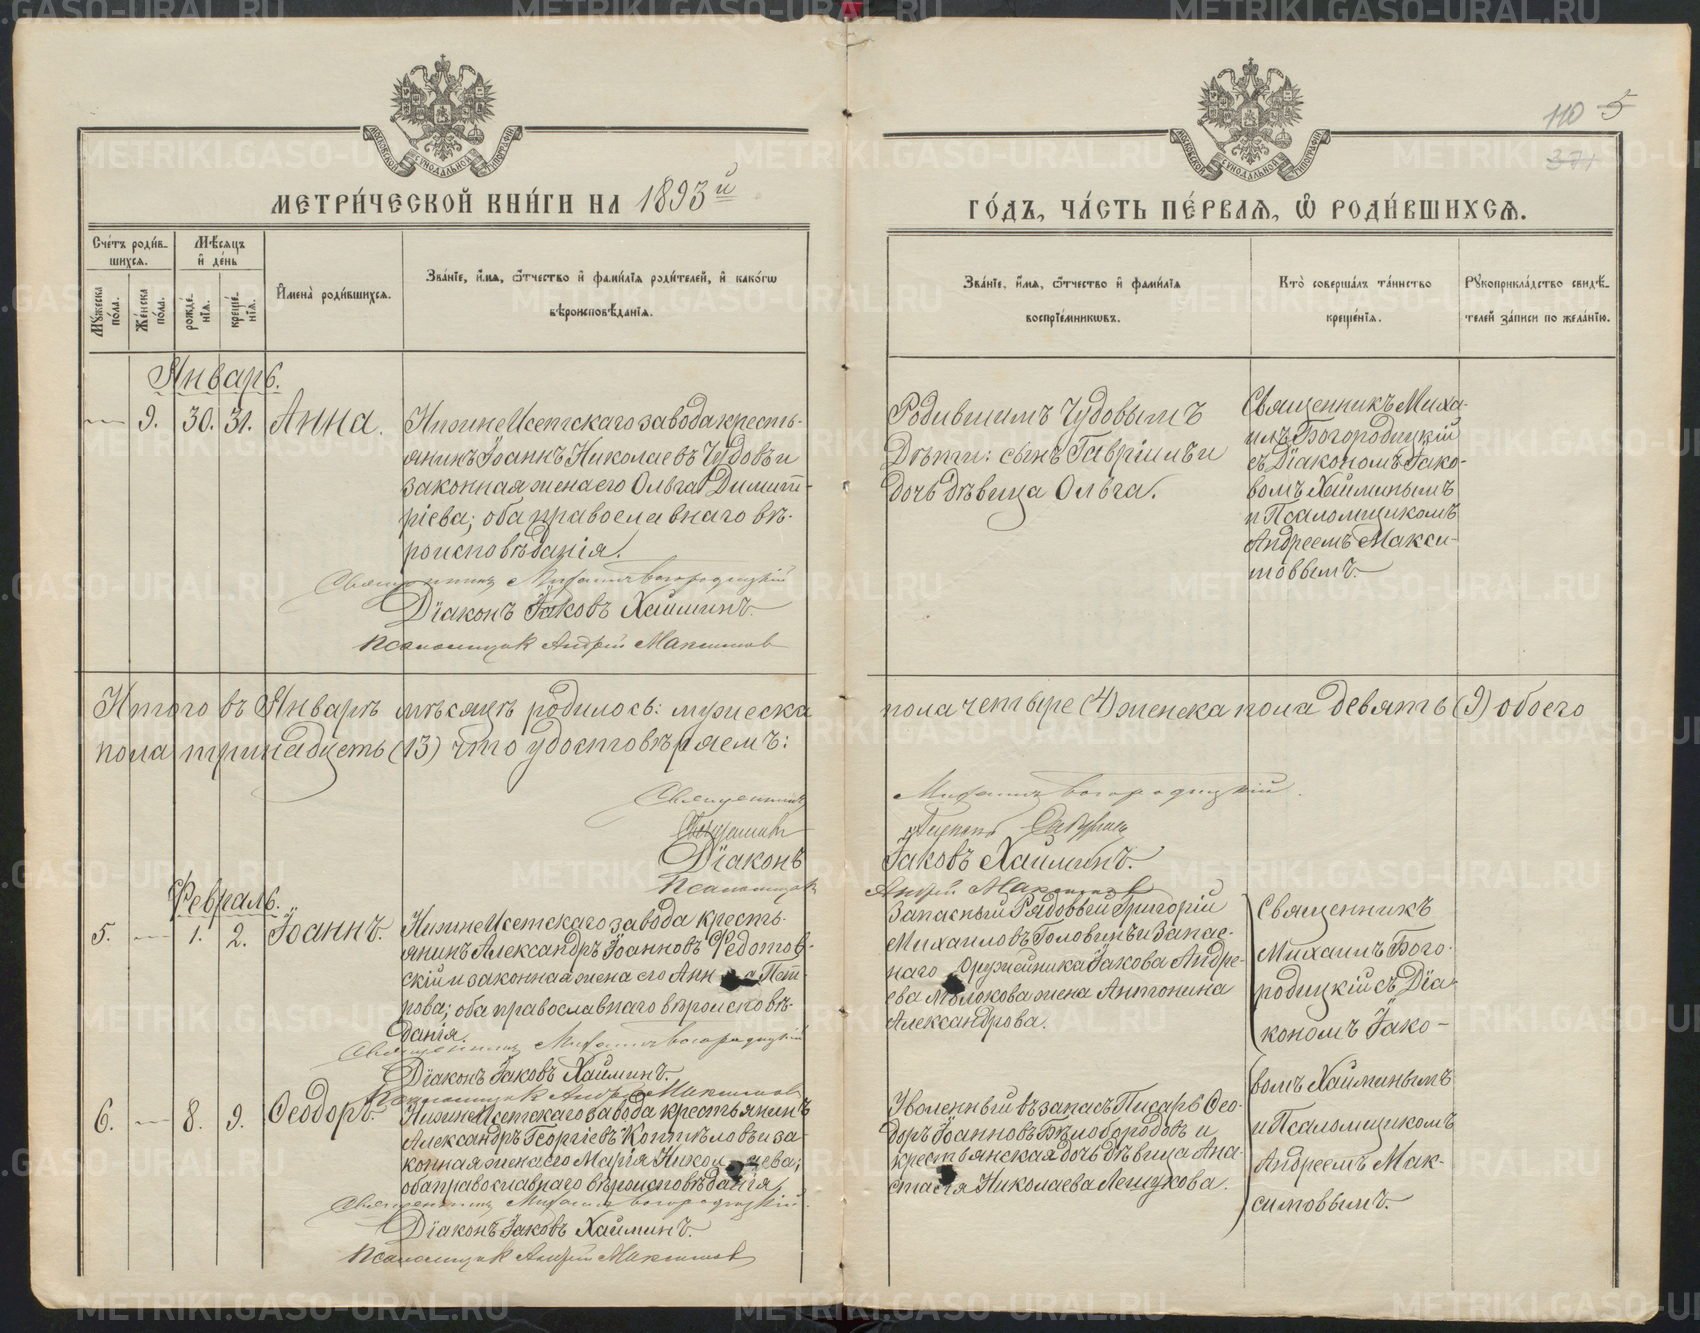 110 5
371
МЕТРИ́ЧЕСКОЙ КНИ́ГИ НА 1893й
ГО́ДЪ, ЧА́СТЬ ПЕ́РВАѦ, Ѡ҆ РОДИ́ВШИХСѦ.
Сче́тъ роди́в-
шихся.
Мѣ́сяцъ
и҆ де́нь
Му́жеска
по́ла.
Же́нска
по́ла.
рожде́-
нїѧ.
креще́-
нїѧ.
И҆мена̀ роди́вшихсѧ.
Зва́нїе, и҆́мѧ, ѻ҆́тчество и҆ фами́лїѧ роди́телей, и҆ како́гѡ
вѣроисповѣ́данїѧ.
Зва́нїе, и҆́мѧ, ѻ҆́тчество и҆ фами́лїѧ
воспрїе́мникѡвъ.
Кто̀ соверша́лъ та́инство
креще́нїѧ.
Рꙋкоприкла́дство свидѣ́-
телей за́писи по жела́нїю.
Январь.
9. 30. 31. Анна.
НижнеИсетскаго завода кресть-
янинъ Іоаннъ Николаевъ Чудовъ и
законная жена его Ольга Димит-
ріева; оба православнаго вѣ-
роисповѣданія.
Священникъ Михаилъ Богородицкій
Діаконъ Іаковъ Хайминъ.
Псаломщик Андрей Максимов
Родившимъ Чудовымъ
Дѣти: сынъ Гавріилъ и
дочь дѣвица Ольга.
Священникъ Миха-
илъ Богородицкій
съ Діакономъ Іако-
вомъ Хайминымъ
и Псаломщикомъ
Андреемъ Макси-
мовымъ.
Итого въ Январѣ мѣсяцѣ родилось: мужеска
пола четыре (4) женска пола девять (9) обоего
пола тринадцать (13) что удостовѣряемъ:
Священникъ
Михаилъ Богородицкій.
Діаконъ
Іаковъ Хайминъ.
Псаломщик
Андрей Максимов
Февраль.
5. 1. 2. Іоаннъ.
НижнеИсетскаго завода кресть-
янинъ Александръ Іоанновъ Федотов-
скій и законная жена его Анна Пет-
рова; оба православнаго вѣроисповѣ-
данія.
Священникъ Михаилъ Богородицкій
Діаконъ Іаковъ Хайминъ.
Псаломщик Андрей Максимов
Запасный Рядовый Григорій
Михаиловъ Головинъ и Запас-
наго Оружейника Іакова Андре-
ева Молокова жена Антонина
Александрова.
Священникъ
Михаилъ Бого-
родицкій съ Діа-
кономъ Іако-
вомъ Хайминымъ
и Псаломщикомъ
Андреемъ Мак-
симовымъ.
6. 8. 9. Ѳеодоръ.
НижнеИсетскаго завода крестьянинъ
Александръ Георгіевъ Коптѣловъ и за-
конная жена его Марія Николаева;
оба православнаго вѣроисповѣданія
Священникъ Михаилъ Богородицкій.
Діаконъ Іаковъ Хайминъ.
Псаломщик Андрей Максимов
Уволенный въ запасъ Писарь Ѳео-
доръ Іоанновъ Бѣлобородовъ и
крестьянская дочь дѣвица Ана-
стасія Николаева Лещукова.